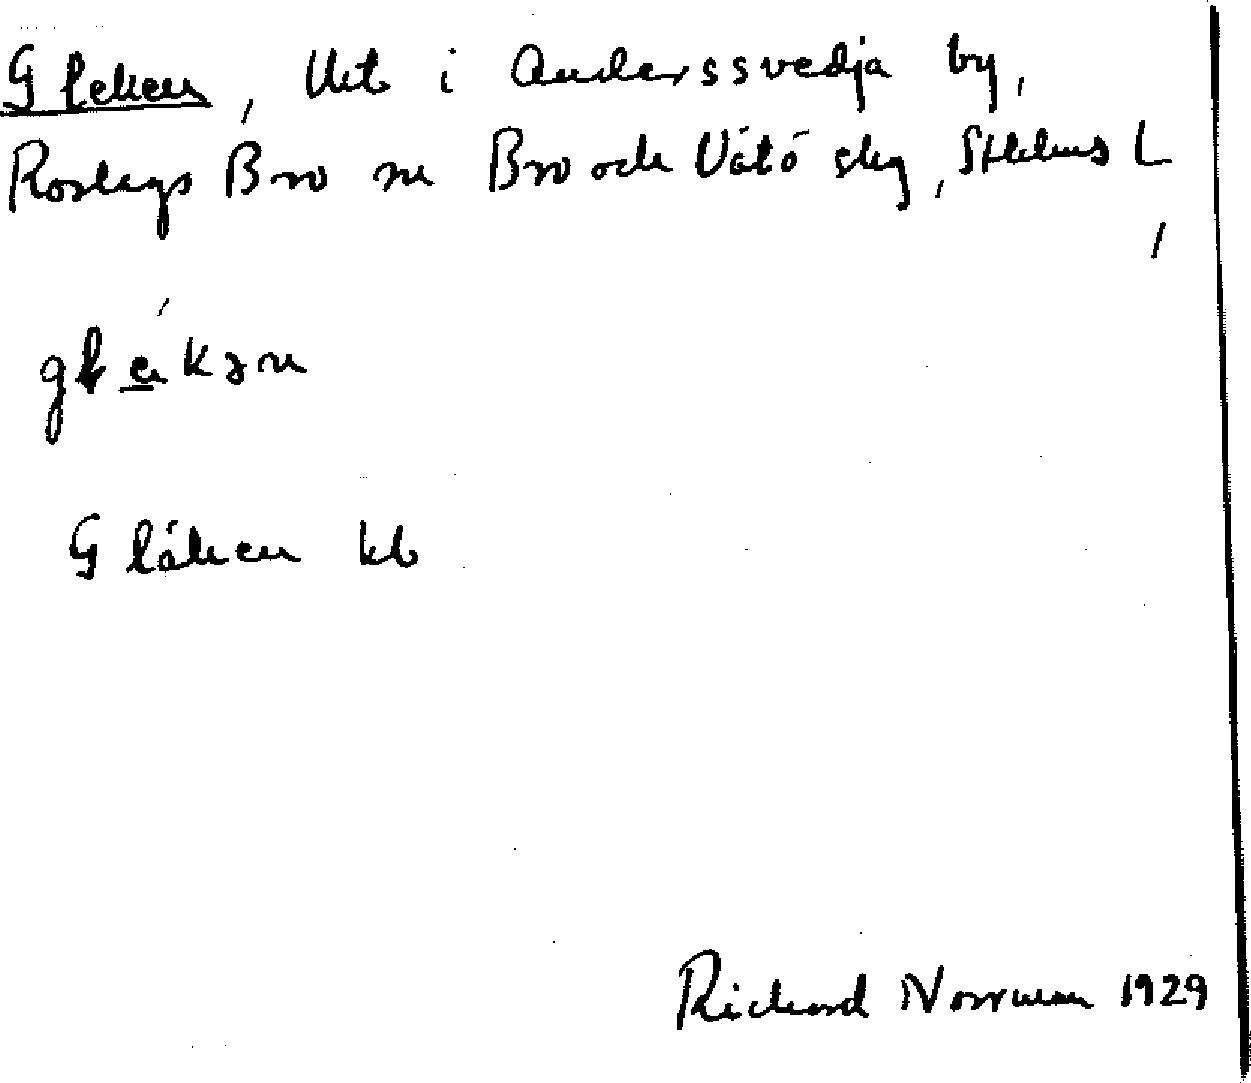 Gleken, Utb i Anderssvedja by,
Roslags Bro sn Bro och Vätö skg, Sthlms L
Gläken kb
Richard Norrman 1929